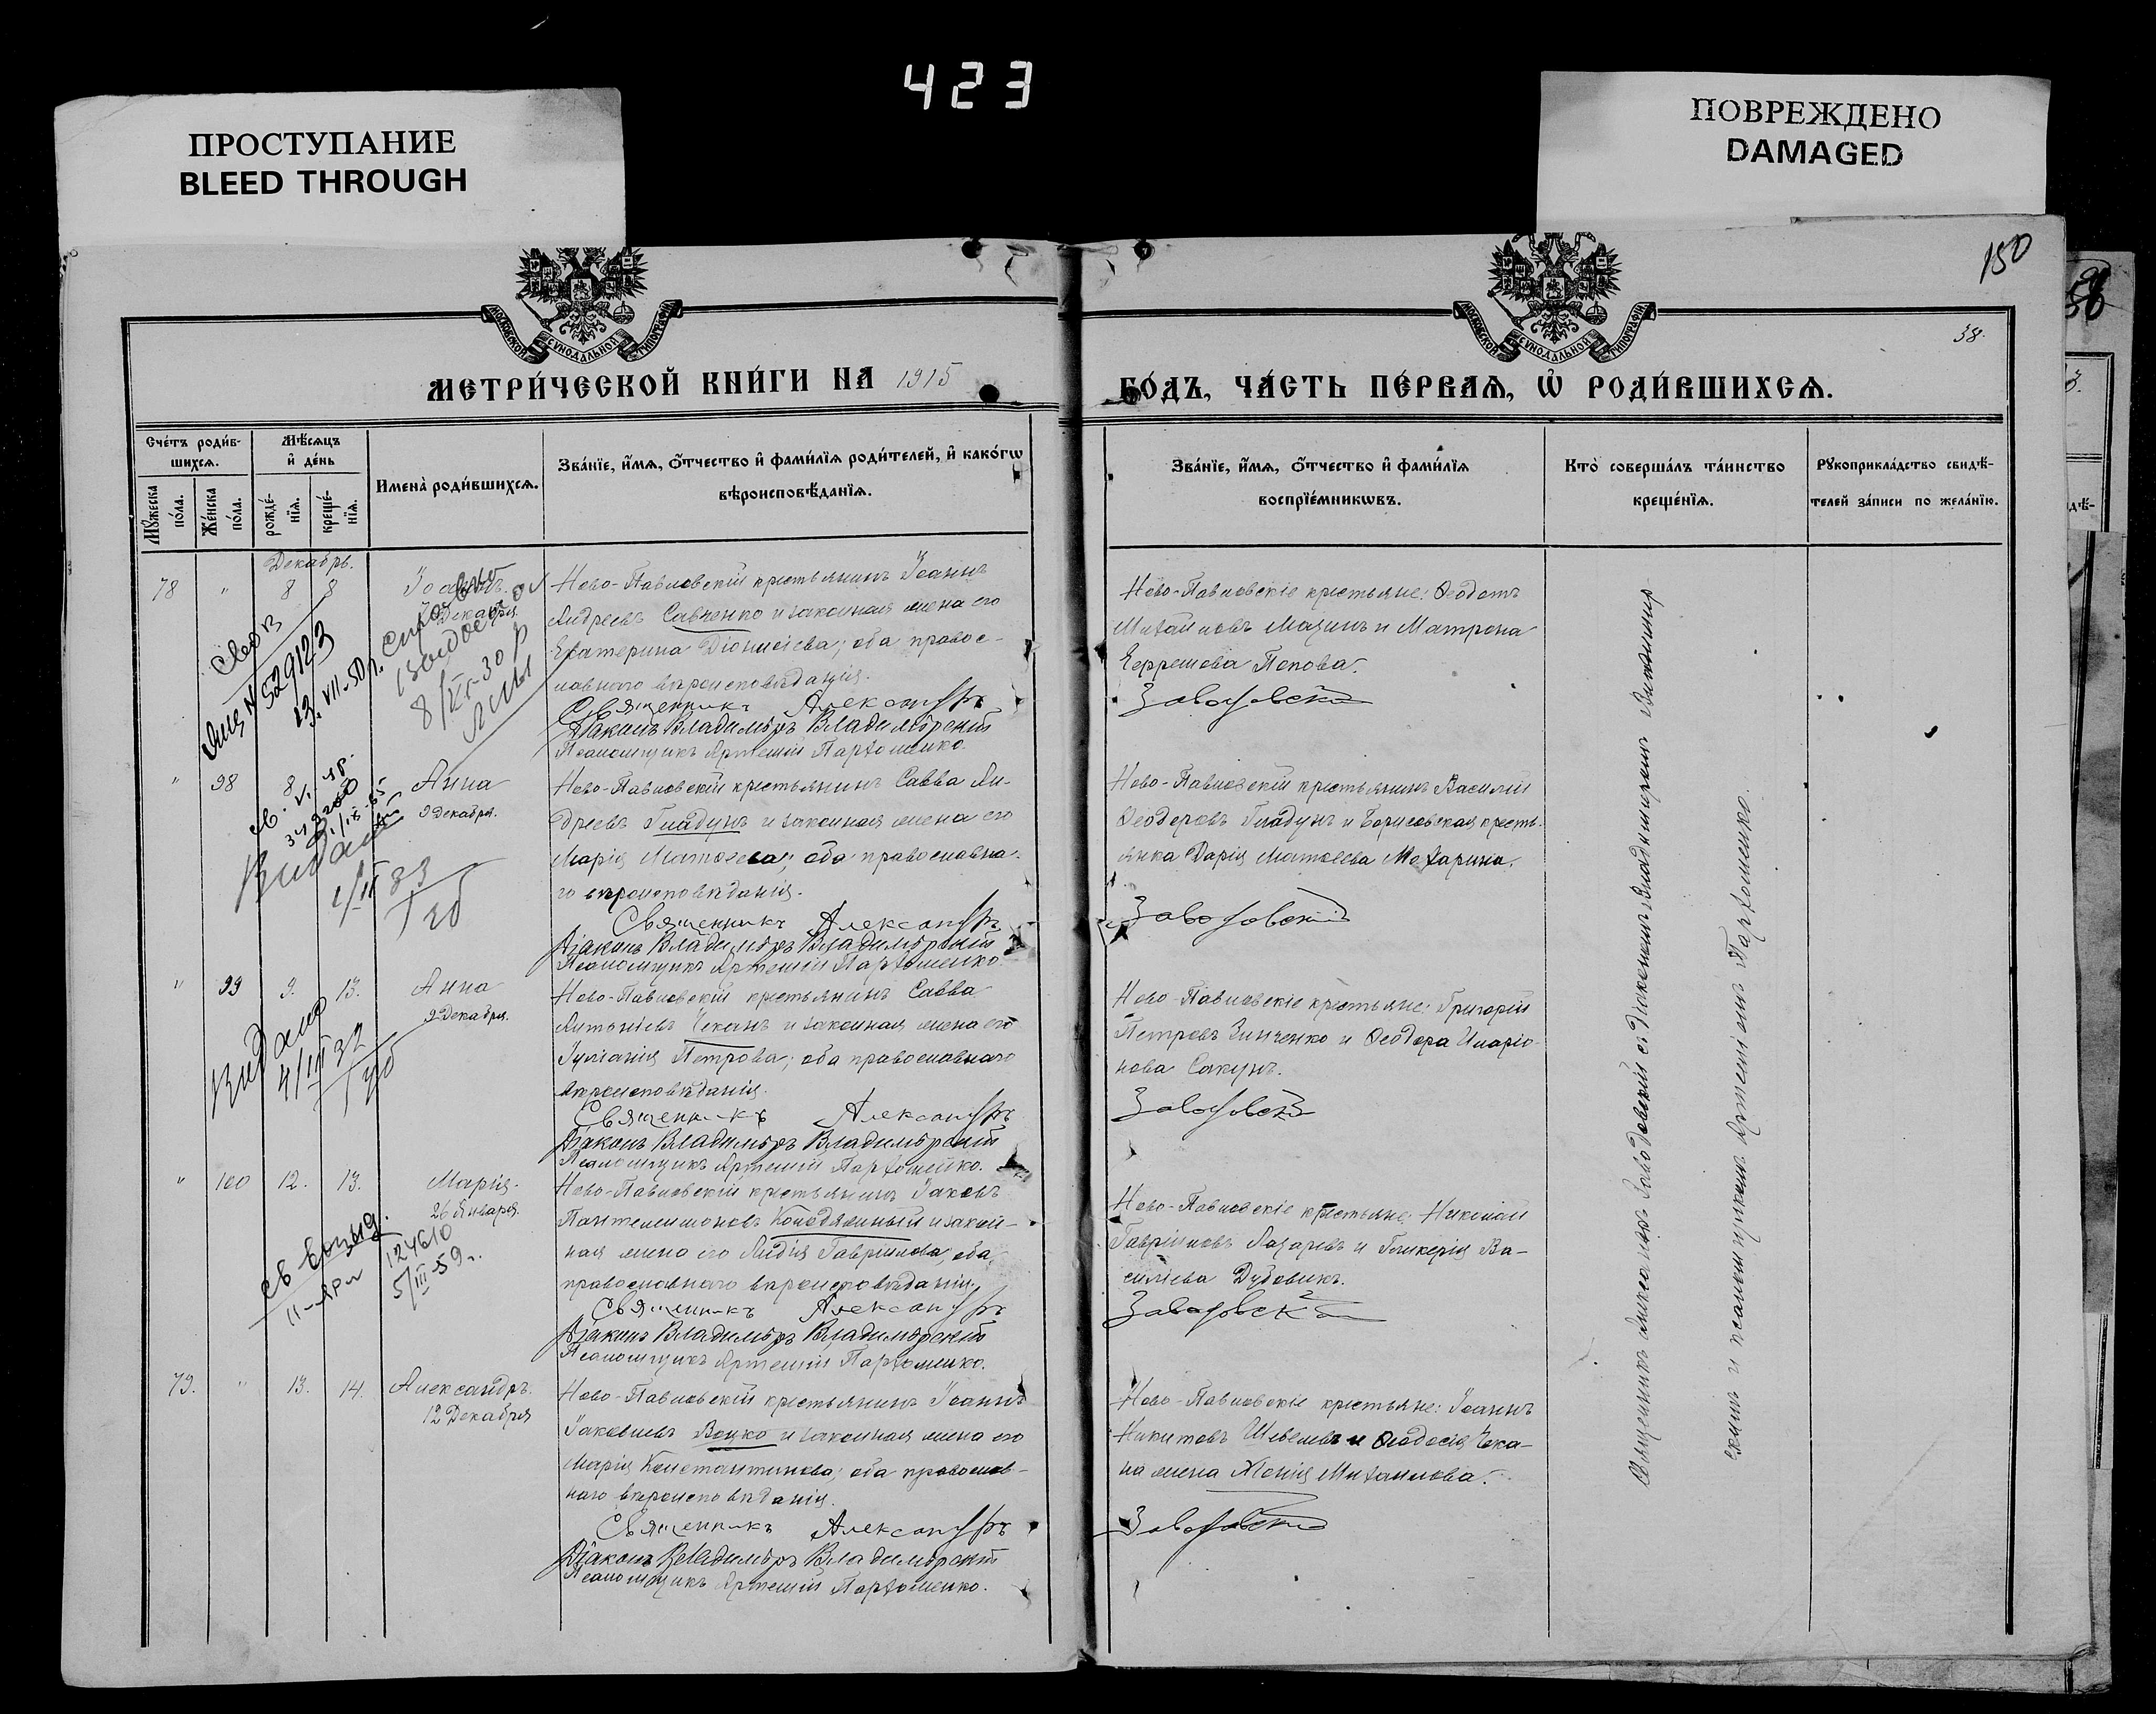 423
ПРОСТУПАНИЕ
BLEED THROUGH
ПОВРЕЖДЕНО
DAMAGED
150
38.
МОСКОВСКОЙ СѴНОДАЛЬНОЙ ТИПОГРАФІИ
МОСКОВСКОЙ СѴНОДАЛЬНОЙ ТИПОГРАФІИ
МЕТРИ́ЧЕСКОЙ КНИ́ГИ НА 1915
ГО́ДЪ, ЧА́СТЬ ПЕ́РВАѦ, Ѡ҆ РОДИ́ВШИХСѦ.
Сче́тъ роди́в-
шихсѧ.
Мꙋжеска по́ла.
Же́нска по́ла.
Мѣ́сѧцъ
и҆ де́нь
рожде́-
нїѧ.
креще́-
нїѧ.
Имена̀ роди́вшихсѧ.
Зва́нїе, и҆́мѧ, ѻ҆́тчество и҆ фами́лїѧ роди́телей, и҆ како́гѡ
вѣроисповѣ́данїѧ.
Зва́нїе, и҆́мѧ, ѻ҆́тчество и҆ фами́лїѧ
воспрїе́мникѡвъ.
Кто̀ соверша́лъ та́инство
креще́нїѧ.
Рꙋкоприкла́дство свидѣ́-
телей за́писи по жела́нїю.
Декабрь.
78 " 8 8 Іоаннъ.
7 Декабря
Ново-Павловскій крестьянинъ Іоаннъ
Андреевъ Савченко и законная жена его
Екатерина Діонисіева; оба правос-
лавнаго вѣроисповѣданія.
Священникъ Александръ
Діаконъ Владиміръ Владимірскій
Псаломщикъ Артемій Пархоменко.
Ново-Павловскіе крестьяне: Ѳеодотъ
Михайловъ Мазинъ и Матрона
Ефремова Попова.
Заводовскій
№ 529123
13.VII-50 г.
8/XI-30 р
" 98 8 Анна
9 Декабря.
Ново-Павловскій крестьянинъ Савва Ан-
дреевъ Гладунъ и законная жена его
Марія Матѳеева; оба православна-
го вѣроисповѣданія.
Священникъ Александръ
Діаконъ Владиміръ Владимірскій
Псаломщикъ Артемій Пархоменко.
Ново-Павловскій крестьянинъ Василій
Ѳеодоровъ Гладунъ и Борисовская кресть-
янка Дарія Матѳеева Мохарина.
Заводовскій
" 99 9. 13. Анна
9 Декабря.
Видано
4/III 32
Ново-Павловскій крестьянинъ Савва
Антоніевъ Чеканъ и законная жена его
Іуліанія Петрова; оба православнаго
вѣроисповѣданія.
Священникъ Александръ
Діаконъ Владиміръ Владимірскій
Псаломщикъ Артемій Пархоменко.
Ново-Павловскіе крестьяне: Григорій
Петровъ Зинченко и Ѳеодора Иларіо-
нова Сакунъ.
Заводовскій
" 100 12. 13. Марія.
26 Января.
124610
5/III-59 г.
Ново-Павловскій крестьянинъ Іаковъ
Пантелеимоновъ Колодяжный и закон-
ная жена его Лидія Гавріилова; оба
православнаго вѣроисповѣданія.
Священникъ Александръ
Діаконъ Владиміръ Владимірскій
Псаломщикъ Артемій Пархоменко.
Ново-Павловскіе крестьяне: Николай
Гавріиловъ Лазаревъ и Гликерія Ва-
силіева Дубовикъ.
Заводовскій
79. " 13. 14. Александръ.
12 Декабря
Ново-Павловскій крестьянинъ Іоаннъ
Іаковлевъ Воцко и законная жена его
Марія Константинова; оба православ-
наго вѣроисповѣданія.
Священникъ Александръ
Діаконъ Владиміръ Владимірскій
Псаломщикъ Артемій Пархоменко.
Ново-Павловскіе крестьяне: Іоаннъ
Никитовъ Шевелевъ и Ѳеодосія Чека-
на жена Ксенія Михаилова.
Заводовскій
Священникъ Александръ Заводовскій съ Діакономъ Владиміромъ Владимір-
скимъ и псаломщикомъ Артеміемъ Пархоменко.